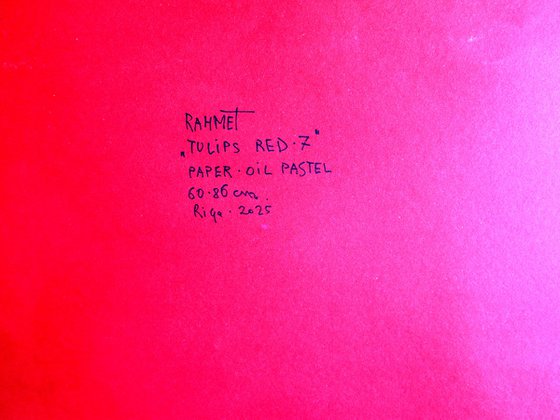 RAHMET
„TULiPS RED·7"
PAPER·OiL PASTEL
60·86 cm.
Riga·2025